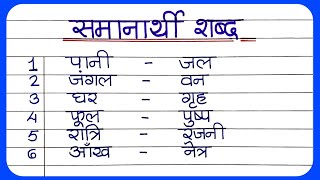 समानार्थी शब्द
1 पानी - जल
2 जंगल - वन
3 घर - गृह
4 फूल - पुष्प
5 रात्रि - रजनी
6 आँख - नेत्र